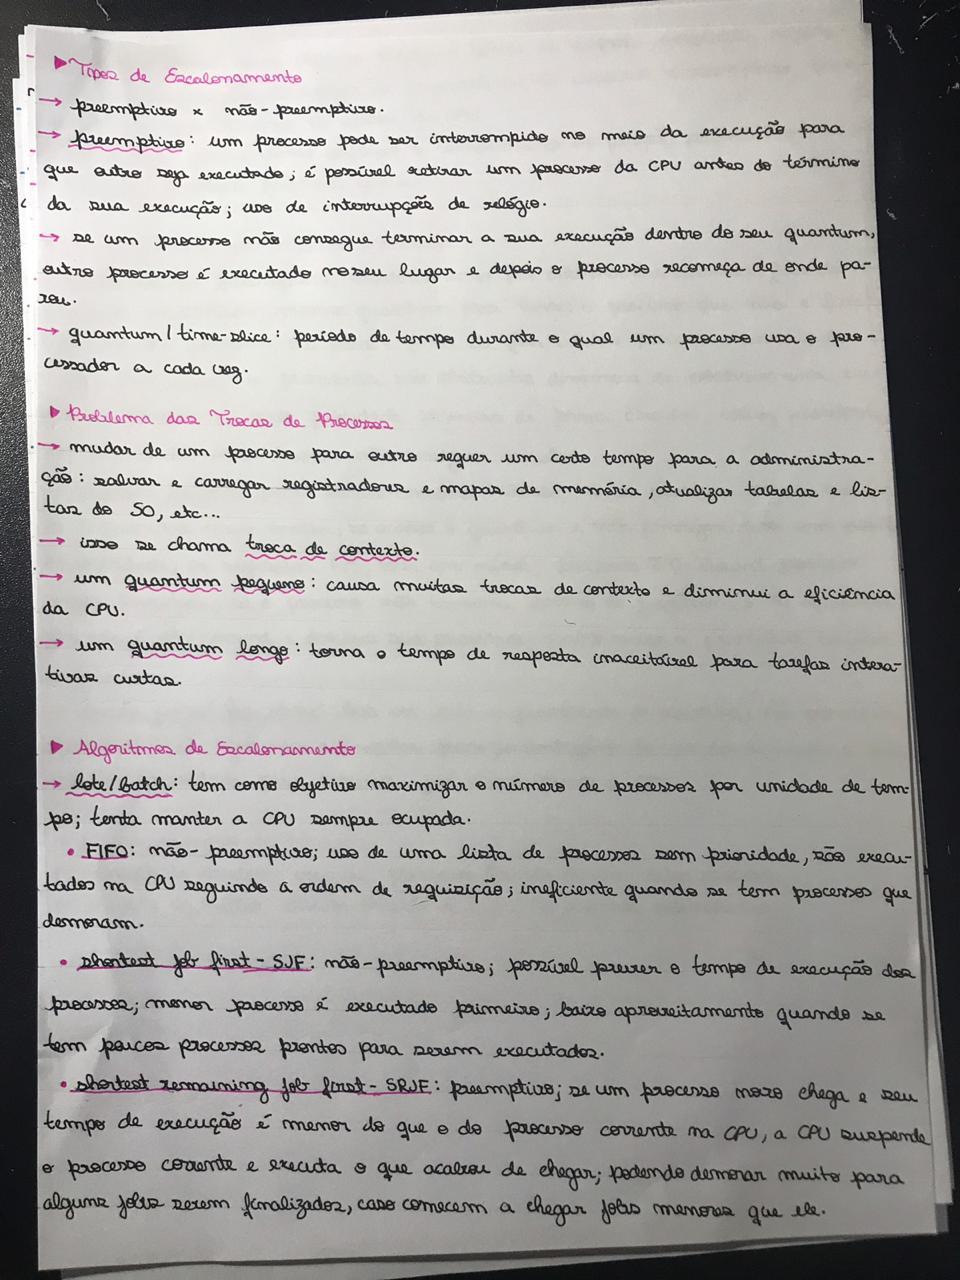 ▶ Tipos de Escalonamento
→ preemptivo x não-preemptivo.
→ preemptivo: um processo pode ser interrompido no meio da execução para
que outro seja executado; é possível retirar um processo da CPU antes do término
da sua execução; uso de interrupções de relógio.
→ se um processo não consegue terminar a sua execução dentro do seu quantum,
outro processo é executado no seu lugar e depois o processo recomeça de onde pa-
rou.
→ quantum/time-slice: período de tempo durante o qual um processo usa o pro-
cessador a cada vez.
▶ Problema das Trocas de Processos
→ mudar de um processo para outro requer um certo tempo para a administra-
ção: salvar e carregar registradores e mapas de memória, atualizar tabelas e lis-
tas do SO, etc...
→ isso se chama troca de contexto.
→ um quantum pequeno: causa muitas trocas de contexto e diminui a eficiência
da CPU.
→ um quantum longo: torna o tempo de resposta inaceitável para tarefas intera-
tivas curtas.
▶ Algoritmos de Escalonamento
→ lote/batch: tem como objetivo maximizar o número de processos por unidade de tem-
po; tenta manter a CPU sempre ocupada.
• FIFO: não-preemptivo; uso de uma lista de processos sem prioridade, são execu-
tados na CPU seguindo a ordem de requisição; ineficiente quando se tem processos que
demoram.
• shortest job first - SJF: não-preemptivo; possível prever o tempo de execução dos
processos; menor processo é executado primeiro; baixo aproveitamento quando se
tem poucos processos prontos para serem executados.
• shortest remaining job first - SRJF: preemptivo; se um processo novo chega e seu
tempo de execução é menor do que o do processo corrente na CPU, a CPU suspende
o processo corrente e executa o que acabou de chegar; podendo demorar muito para
alguns jobs serem finalizados, caso comecem a chegar jobs menores que ele.